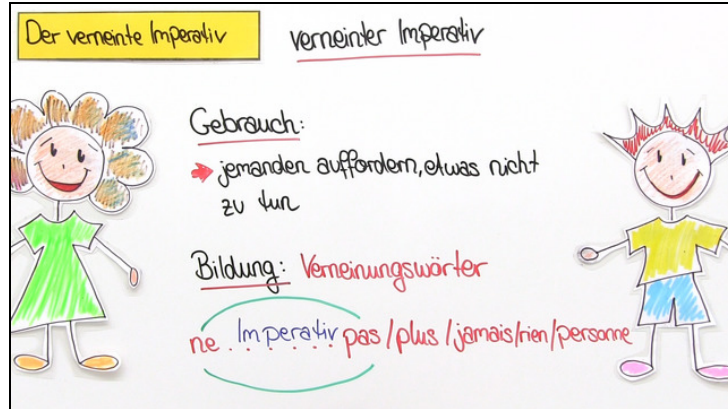 Der verneinte Imperativ
verneinter Imperativ
Gebrauch:
jemanden auffordern, etwas nicht
zu tun
Bildung: Verneinungswörter
ne . Imperativ pas / plus / jamais/rien/personne